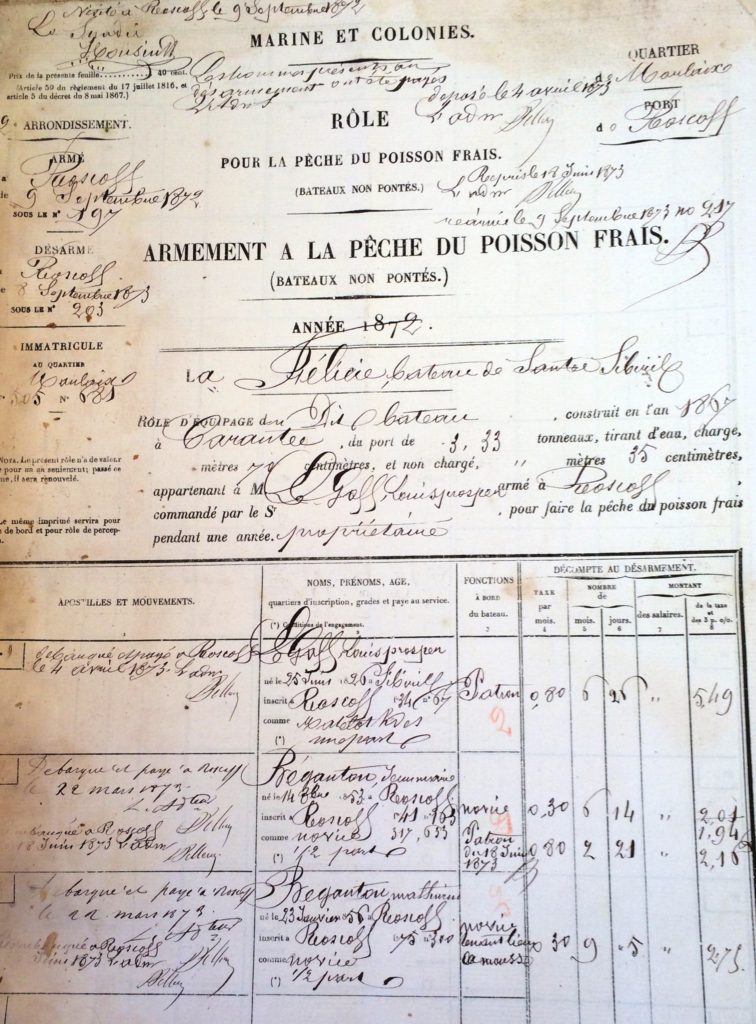 Visité à Roscoff le 9 Septembre 1872
Le Syndic
MARINE ET COLONIES.
Prix de la présente feuille........... 40 cent.
(Article 59 du règlement du 17 juillet 1816, et
article 5 du décret du 8 mai 1867.)
Les hommes présents au
désarmement ont été payés
L'adm
déposé le 4 avril 1873
L'adm
QUARTIER
de Morlaix
PORT
de Roscoff
ARRONDISSEMENT.
RÔLE
POUR LA PÊCHE DU POISSON FRAIS.
(BATEAUX NON PONTÉS.)
Repris le 18 Juin 1873
L'adm
réarmé le 9 Septembre 1873 no 217
ARMÉ
à Roscoff
le 9 Septembre 1872
SOUS LE N° 197
ARMEMENT A LA PÊCHE DU POISSON FRAIS.
(BATEAUX NON PONTÉS.)
DÉSARMÉ
à Roscoff
le 8 Septembre 1873
SOUS LE N° 203
ANNÉE 1872.
IMMATRICULE
AU QUARTIER
Morlaix
N° 681
LA Félicie, bateau de Santec Sibiril
RÔLE D'ÉQUIPAGE du Dit bateau, construit en l'an 1867
à Carantec, du port de 3,33 tonneaux, tirant d'eau, chargé,
" mètres 70 centimètres, et non chargé, " mètres 35 centimètres,
appartenant à M Le Goff Louis prosper armé à Roscoff
commandé par le Sr propriétaire, pour faire la pêche du poisson frais
pendant une année.
NOTA. Le présent rôle n'a de valeur
que pour un an seulement; passé ce
terme, il sera renouvelé.
Le même imprimé servira pour
rôle de bord et pour rôle de perception.
APOSTILLES ET MOUVEMENTS.
NOMS, PRÉNOMS, AGE,
quartiers d'inscription, grades et paye au service.
(*) Conditions de l'engagement.
FONCTIONS
À BORD
du bateau.
3
DÉCOMPTE AU DÉSARMEMENT.
TAXE
par
mois.
4
NOMBRE
de
mois.
5
jours.
6
MONTANT
des salaires.
7
de la taxe
et des 3 p. 0/0.
8
débarqué et payé à Roscoff
le 4 avril 1873. L'adm
Le Goff Louis prosper
né le 25 Juin 1826 à Sibiril
inscrit à Roscoff 134 n° 67
comme Matelot
(*) une part
Patron
0,80 6 26 " 5,49
Débarqué et payé à Roscoff
le 22 mars 1873.
Rembarqué à Roscoff
18 Juin 1873 L'adm
Béganton Jeun marie
né le 14 8bre 1853 à Roscoff
inscrit à Roscoff 741 n° 163
comme novice 317, 633
(*) 1/2 part
novice
0,30 6 14 " 2,01
1,94
Patron
du 18 Juin
1873
0,80 2 21 " 2,16
Débarqué et payé à Roscoff
le 22 mars 1873.
Rembarqué à Roscoff
Juin 1873 L'adm
Béganton mathurin
né le 23 Janvier 1856 à Roscoff
inscrit à Roscoff 75 n° 300
comme novice
(*) 1/2 part
novice
tenant lieu
de mousse
30 9 5 " 2,75